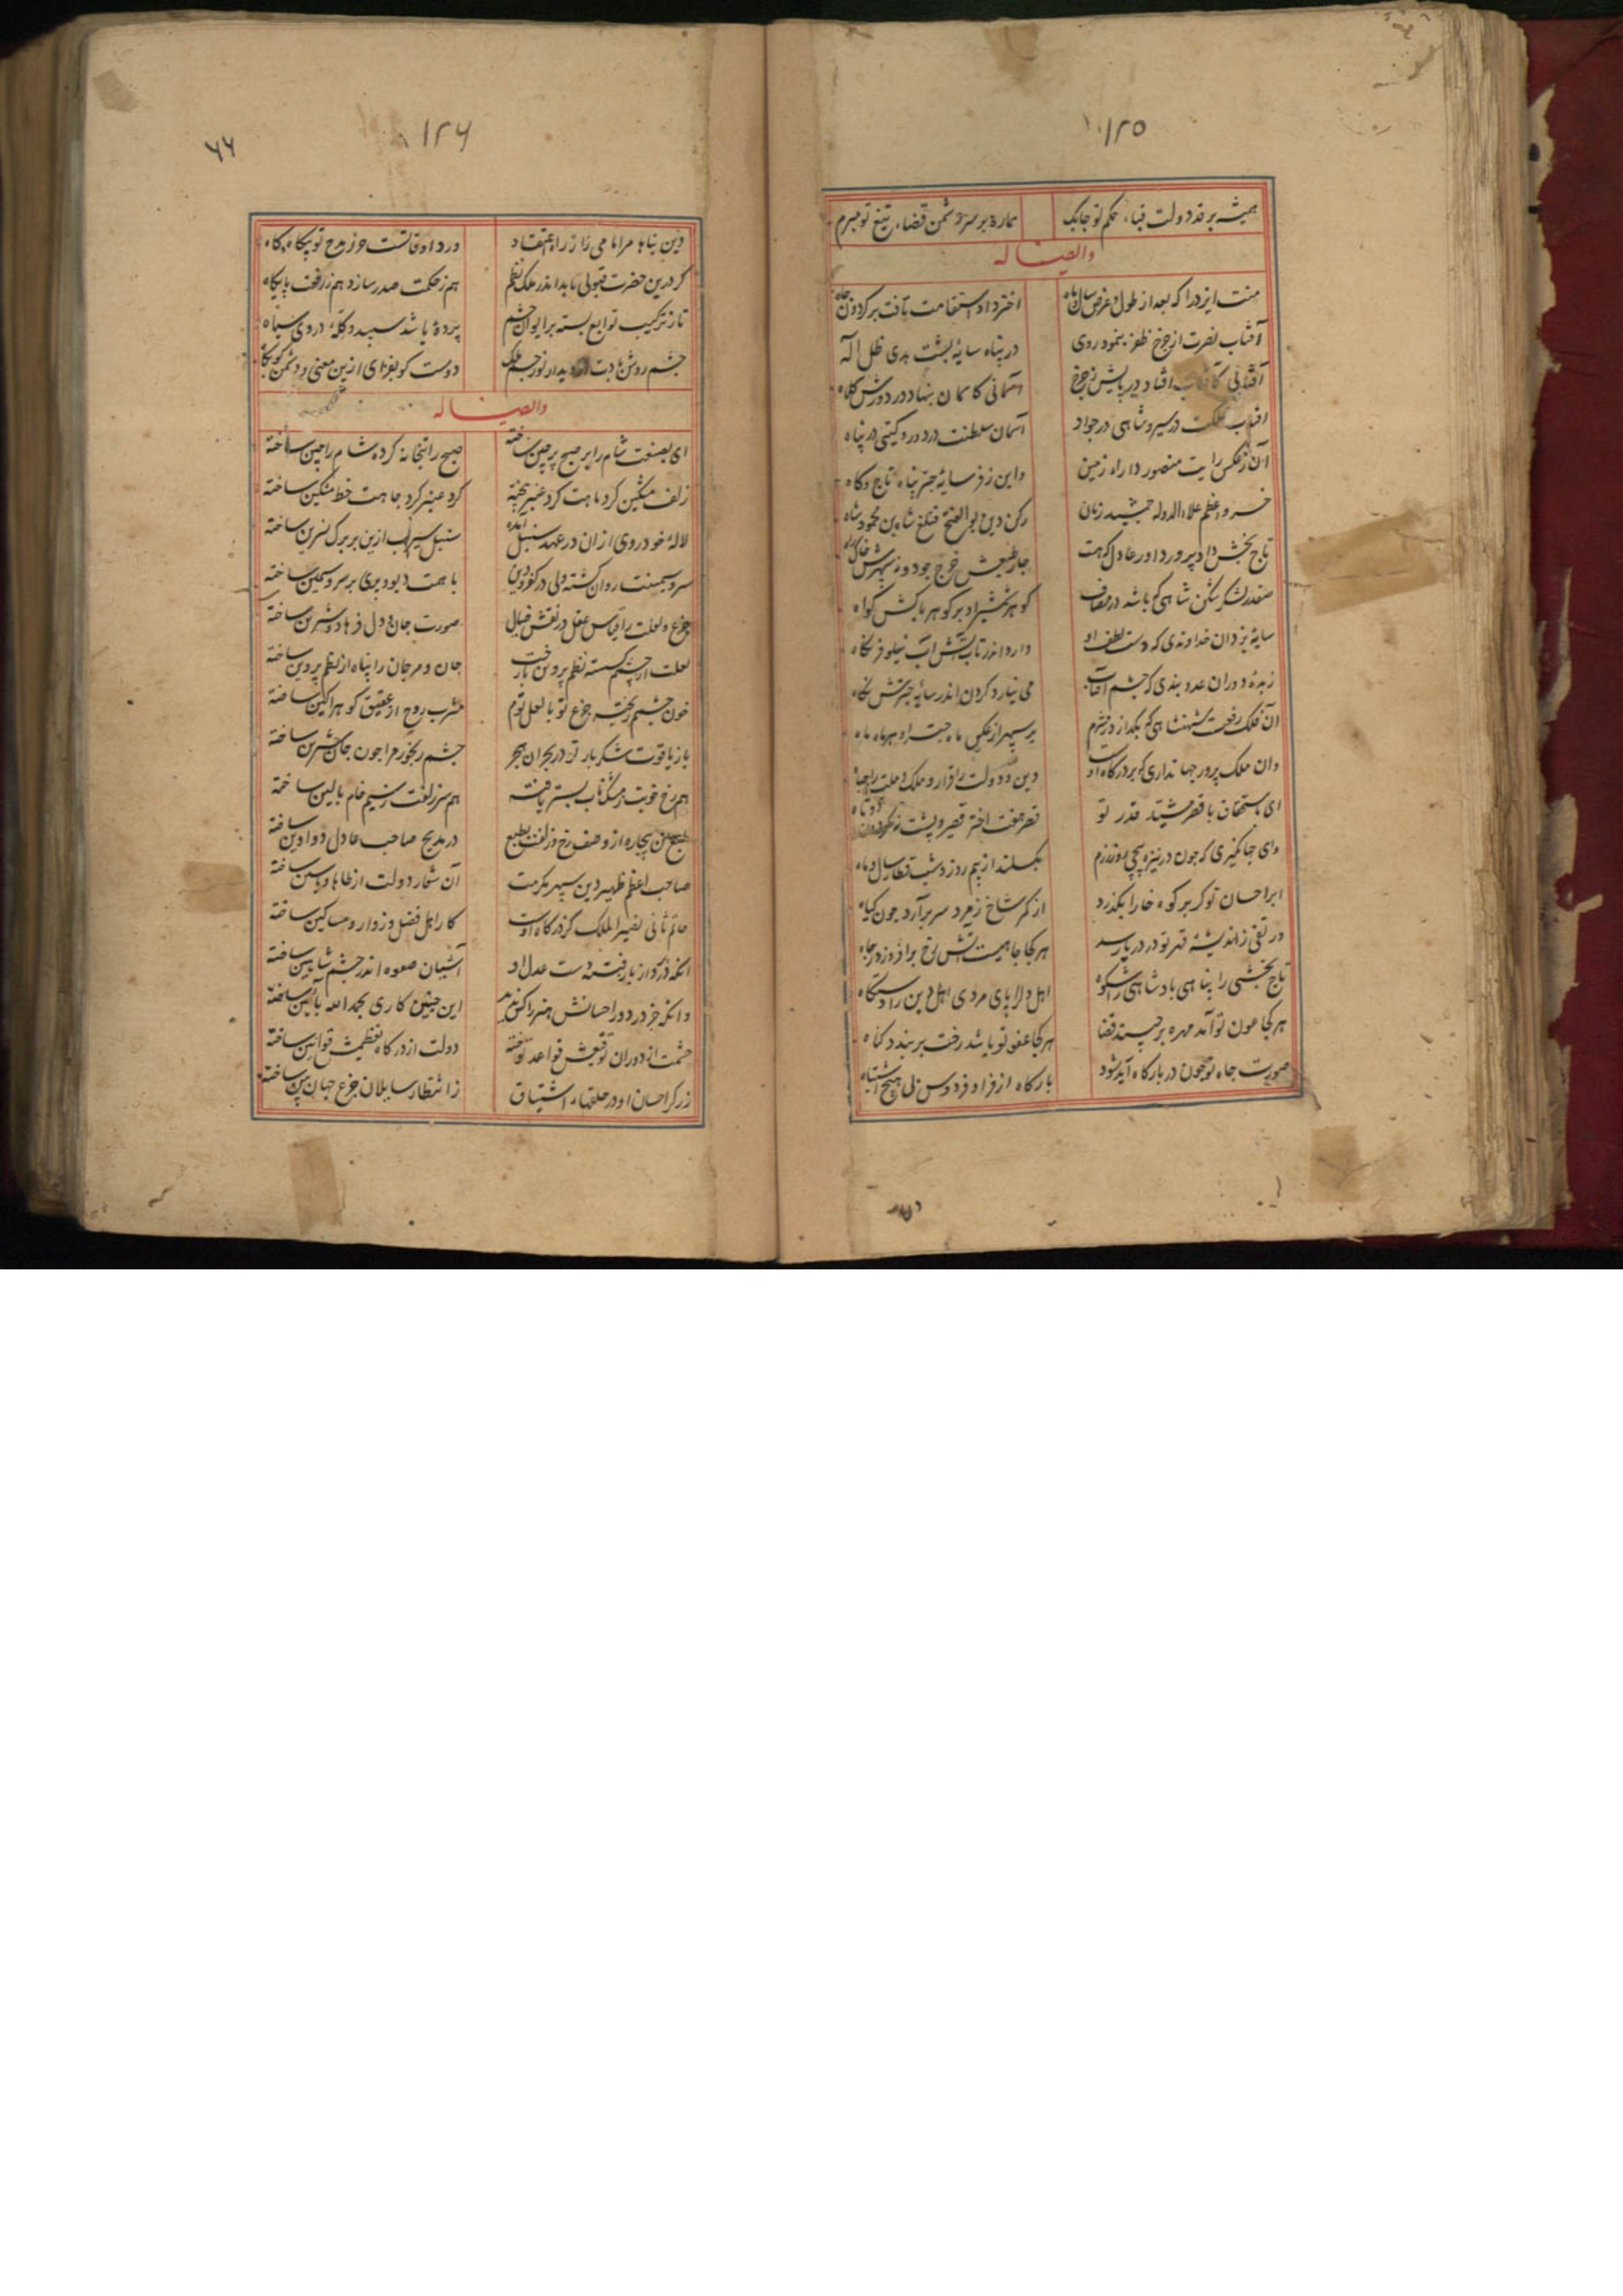 ۱۲۵
همیشه بر قد دولت قبا، حکم تو چابک هماره بر سر دشمن قضا، تیغ تو مبرم
وایضا له
منت ایزد را که بعد از طول و عرض سال و ماه اختر داد استقامت یافت بر گردون جاه
آفتاب نصرت از چرخ ظفر بنمود روی در پناه سایهٔ پشت هدی ظل اله
آفتابی افتاد در پایش ز چرخ آسمانی کاسمان بنهاد در دورش کلاه
افتاب مملکت در سیر و شاهی در جوار آسمان سلطنت در دور و گیتی در پناه
آن ز عکس رایت منصور دارا، زمین واین ز فر سایهٔ چتر پناه تاج و گاه
خسرو اعظم علاء الدوله جمشید زمان رکن دین بوالفتح قتلغ شاه بن محمود شاه
تاج بخش داد پرور داور عادل که هست
صفدر لشکر شکن شاهی که باشد در مصاف گوهر شمشیر او بر گوهر پاکش گواه
سایهٔ یزدان خداوندی که دست لطف او دارد اندر تاب آتش آب نیلوفر نگاه
زبدهٔ دوران عدوبندی که چشم آفتاب می نیارد کردن اندر سایهٔ چترش نگاه
آن فلک رفعت شهنشاهی که بگدازد ز شرم بر سپهر از عکس ماه چتر او هر ماه ماه
وان ملک پرور جهانداری که بر درگاه او دین و دولت را قرار و ملک و ملت را پناه
ای باستحقاق با قصر مشید قدر تو قصر هفت اختر قصیر و پشت نه گردون دوتاه
وای جهانگیری که چون در نیزه پیچی روز رزم بگسلند از بیم روز و شب قطار سال و ماه
ابر احسان تو گر بر کوه خارا بگذرد از کمر شاخ زمرد سر برآرد چون گیاه
در تفی ز اندیشهٔ قهر تو در دریا رسد هر کجا ماهیست آتش رخ برافروزد ز چاه
تاج بخشی را پناهی پادشاهی را شکوه اهل دل را پای مردی اهل دین را دستگاه
هر کجا عون تو آمد مهره برچیند قضا هر کجا عفو تو باشد رخت بربندد گناه
صورت جاه تو چون در بارگاه آید شود بارگاه از فر او فردوس بی هیچ اشتباه
۱۲۶
۶۶
دین پناها مر امامی را ز راه اعتقاد ورد اوقاتست حرز مدح تو بیگاه و گاه
گر درین حضرت قبولی یابد اندر ملک نظم هم ز حکمت صدر سازد هم ز رفعت پایگاه
تا ز ترکیب توابع بسته بر ایوان چشم پردهٔ باشد سپید و کلهٔ در وی سیاه
چشم روشن بادت دیدار نور چشم ملک دوست گو بفزای ازین معنی و دشمن گو بکاه
وایضا له
ای بصنعت شام را بر صبح پرچین ساخته صبح را بتخانه کرده شام را چین ساخته
زلف مشکین کرد ماهت گرد عنبر بیخته گرد عنبر کرد جاهت خط مشکین ساخته
لالهٔ خودروی ازان در عهد سنبل آمده سنبل سیراب ازین بر برگ نسرین ساخته
سرو سیمینت روان گشته ولی در کفر و دین با همت دیو و پری بر سرو سیمین ساخته
جزع و لعلت را قیاس عقل در نقش خیال صورت جان و دل فرهاد و شیرین ساخته
لعلت از چشمم گسسته نظم پروین ساخت باز جان و مرجان را پناه از نظم پروین ساخته
خون چشمم ریخته جزع تو با لعل توام مشرب روح از عقیق گوهر آگین ساخته
باز یاقوت شکربار تو در بحران هجر چشم رنجور مرا چون جان شیرین ساخته
هم رخ خوبت ز مشک ناب بستر یافته هم سر زلفت ز سیم خام بالین ساخته
طبع من بیچاره از وصف رخ و زلفت بطبع در مدیح صاحب عادل دواوین ساخته
صاحب اعظم ظهیر دین سپهر مکرمت آن شعار دولت از طاها و یاسین ساخته
حاتم ثانی نصیر الملک کز درگاه اوست کار اهل فضل و زوار و مساکین ساخته
آنکه گرد از باز رفته دست عدل او آشیان صعوه اندر چشم شاهین ساخته
وانکه جز در دور احسانش هنر را کس ندید این چنین کاری بحمد الله بآیین ساخته
حشمت از دوران توقیعش قواعد توخته دولت از درگاه تعظیمش قوانین ساخته
زرگر احسان او در حلقهاء اشتیاق ز انتظار سایلان جزع جهان بین ساخته